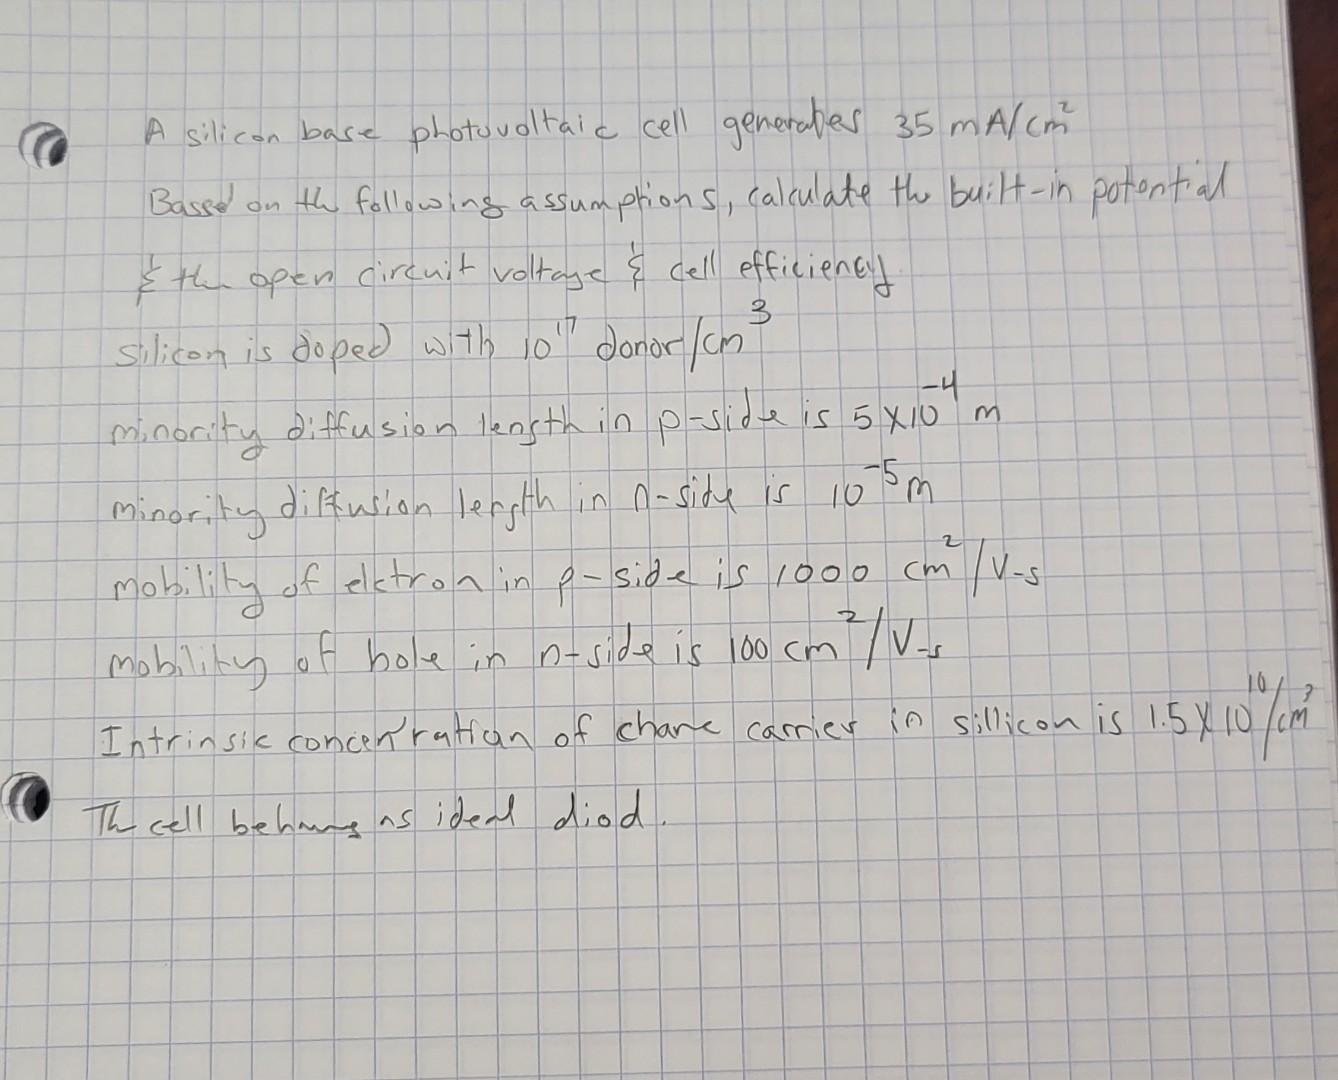 A silicon base photovoltaic cell generates 35 mA/cm²
Based on th following assumptions, calculate the built-in potential
& the open circuit voltage & cell efficiency
silicon is doped with 10¹⁷ donor/cm³
minority diffusion length in p-side is 5×10⁻⁴ m
minority diffusion length in n-side is 10⁻⁵ m
mobility of elctron in p-side is 1000 cm²/V-s
mobility of hole in n-side is 100 cm²/V-s
Intrinsic concentration of carrier in sillicon is 1.5×10¹⁰/cm³
Th cell behaves as ideal diod.